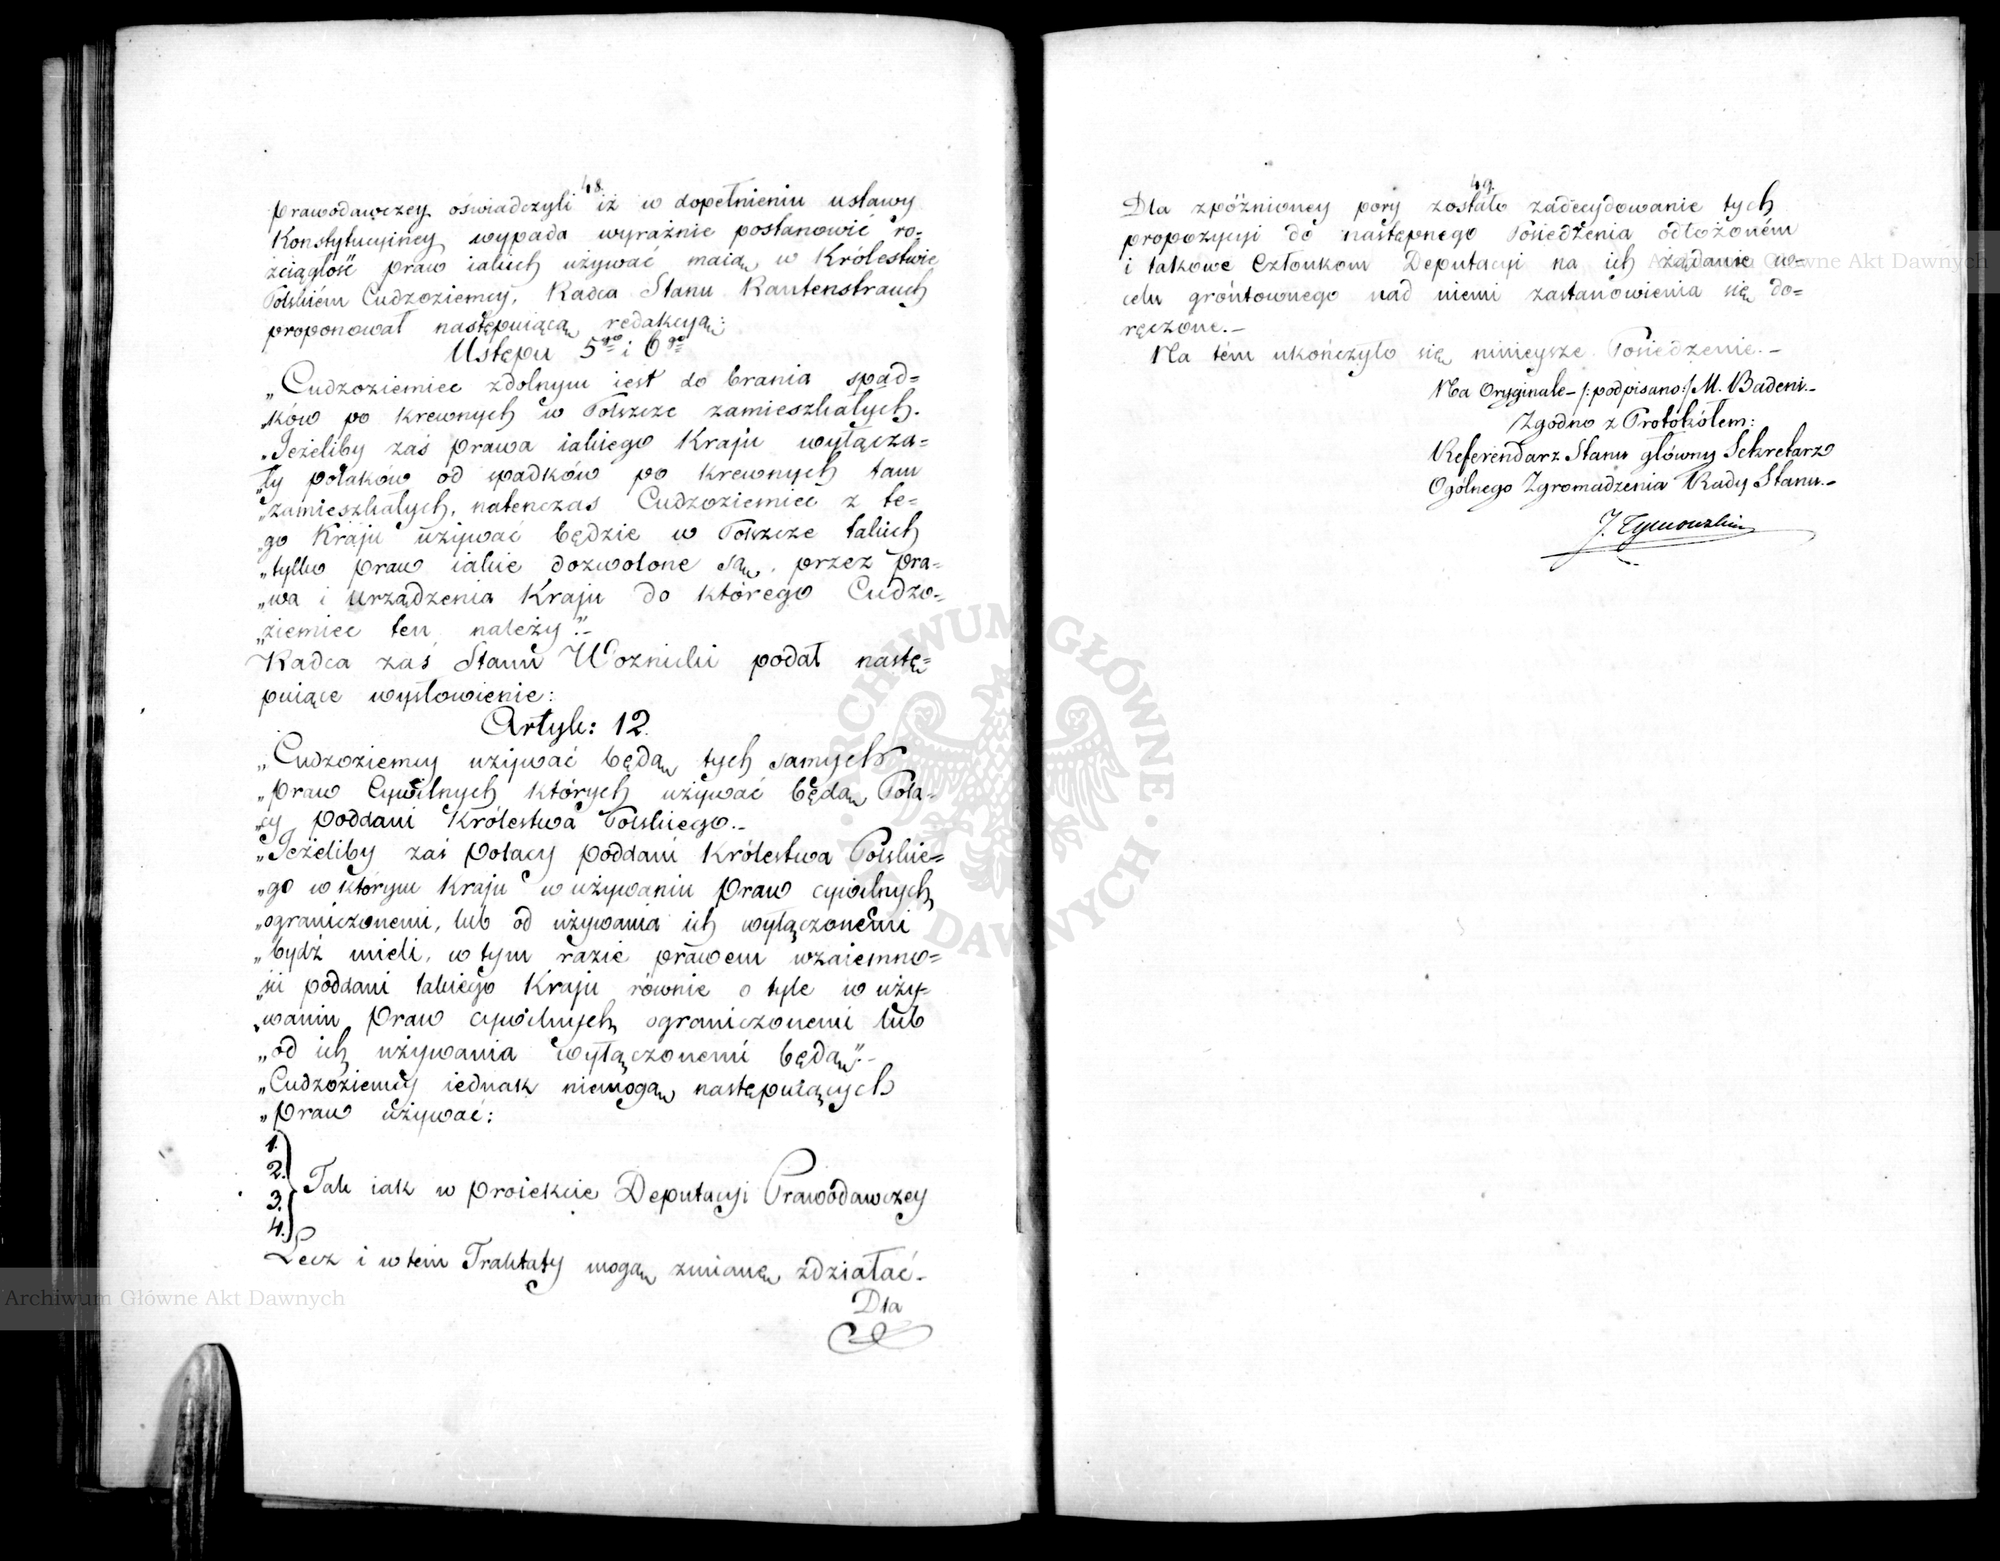 48.
Prawodawczey oświadczyli iż w dopełnieniu ustawy
Konstytucyiney wypada wyraźnie postanowić ro-
zciągłość praw iakich używać maią w Królestwie
Polskiém Cudzoziemcy, Radca Stanu Rautenstrauch
proponował następuiącą redakcyą:
Ustępu 5go i 6go
„Cudzoziemiec zdolnym iest do brania spad=
„ków po krewnych w Polszcze zamieszkałych.
„Jeżeliby zaś prawa iakiego Kraju wyłącza=
„ły polaków od spadków po krewnych tam
„zamieszkałych, natenczas Cudzoziemiec z te=
„go Kraju używać będzie w Polszcze takich
„tylko praw iakie dozwolone są, przez pra=
„wa i urządzenia Kraju do którego Cudzo=
„ziemiec ten należy".-
Radca zaś Stanu Woznicki podał nastę=
puiące wysłowienie:
Artyk: 12.
„Cudzoziemcy używać będą tych samych
„praw Cywilnych których używać będą Pola-
„cy poddani Królestwa Polskiego.-
„Jeżeliby zaś polacy poddani Królestwa Polskie=
„go w którym Kraju w używaniu praw cywilnych
„ograniczonemi, lub od używania ich wyłączonemi
„bydź mieli, w tym razie prawem wzaiemno=
„ści poddani takiego Kraju równie o tyle w uży-
„waniu praw cywilnych ograniczonemi lub
„od ich używania wyłączonemi będą".-
„Cudzoziemcy iednak niemogą następuiących
„praw używać:
1.
2.
3.
4.
Tak iak w proiekcie Deputacyi Prawodawczey
Lecz i w tem Traktaty mogą zmianę zdziałać.-
Dla
49.
Dla zpóźnioney pory zostało zadecydowanie tych
propozycyi do następnego Posiedzenia odłożoném
i takowe Członkom Deputacyi na ich żądanie w=
celu gróntownego nad niemi zastanowienia się do=
ręczone.-
Na tém ukończyło się ninieysze Posiedzenie.-
Na Oryginale - /:podpisano:/ M. Badeni.-
Zgodno z Protókółem:
Referendarz Stanu główny Sekretarz
Ogólnego Zgromadzenia Rady Stanu.-
J. Tymowski
Archiwum Główne Akt Dawnych
Archiwum Główne Akt Dawnych
ARCHIWUM GŁÓWNE AKT DAWNYCH